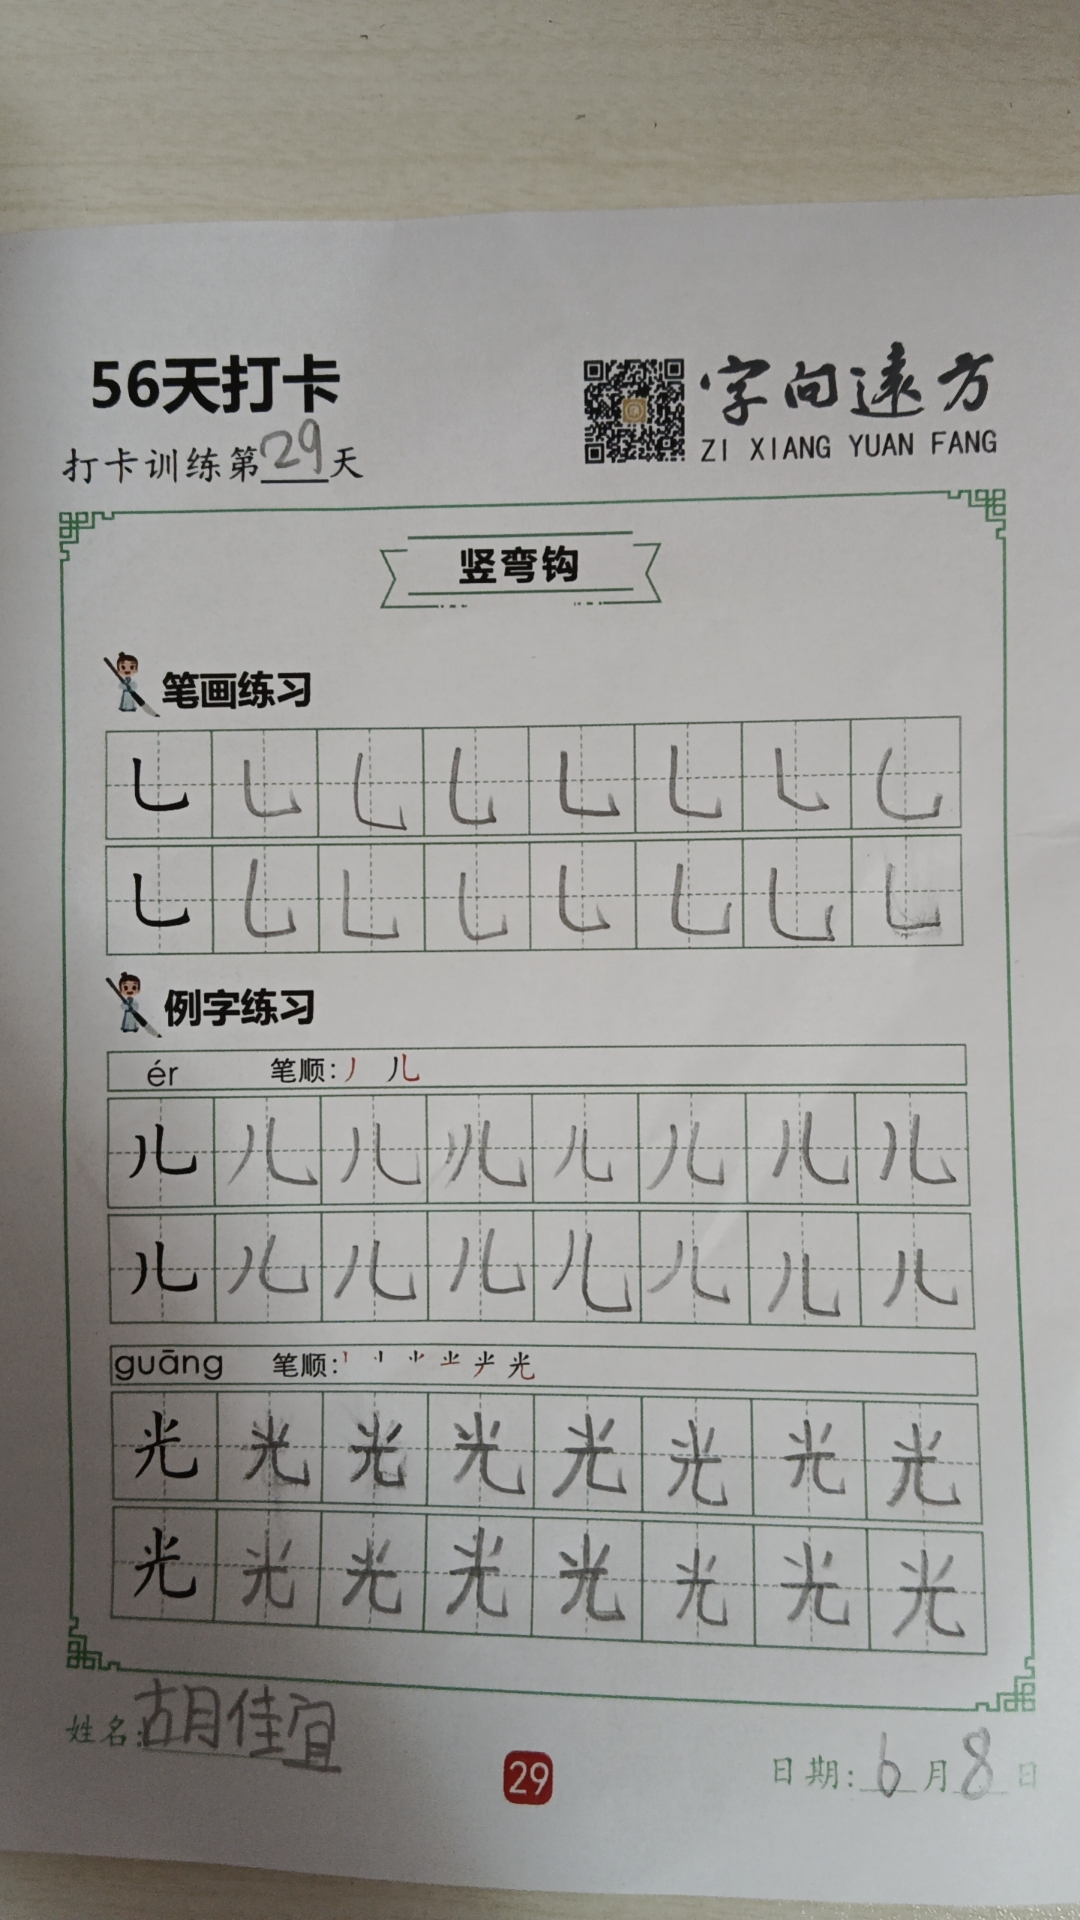 56天打卡
字向遠方
ZI XIANG YUAN FANG
打卡训练第29天
竖弯钩
笔画练习
乚 乚 乚 乚 乚 乚 乚 乚
乚 乚 乚 乚 乚 乚 乚 乚
例字练习
ér 笔顺:丿 儿
儿 儿 儿 儿 儿 儿 儿 儿
儿 儿 儿 儿 儿 儿 儿 儿
guāng 笔顺: 光
光 光 光 光 光 光 光 光
光 光 光 光 光 光 光 光
姓名:胡佳宜
29
日期:6月8日